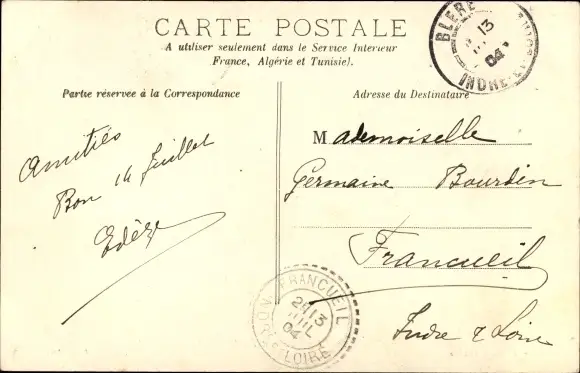 CARTE POSTALE
A utiliser seulement dans le Service Intérieur
France, Algérie et Tunisie).
Partie réservée à la Correspondance
Adresse du Destinataire
Amitiés
Bon 14 Juillet
Edèze
Mademoiselle
Germaine Bourdin
Francueil
Indre & Loire
BLERE
13
04
INDRE
FRANCUEIL
2E 13
JUIL
04
LOIRE